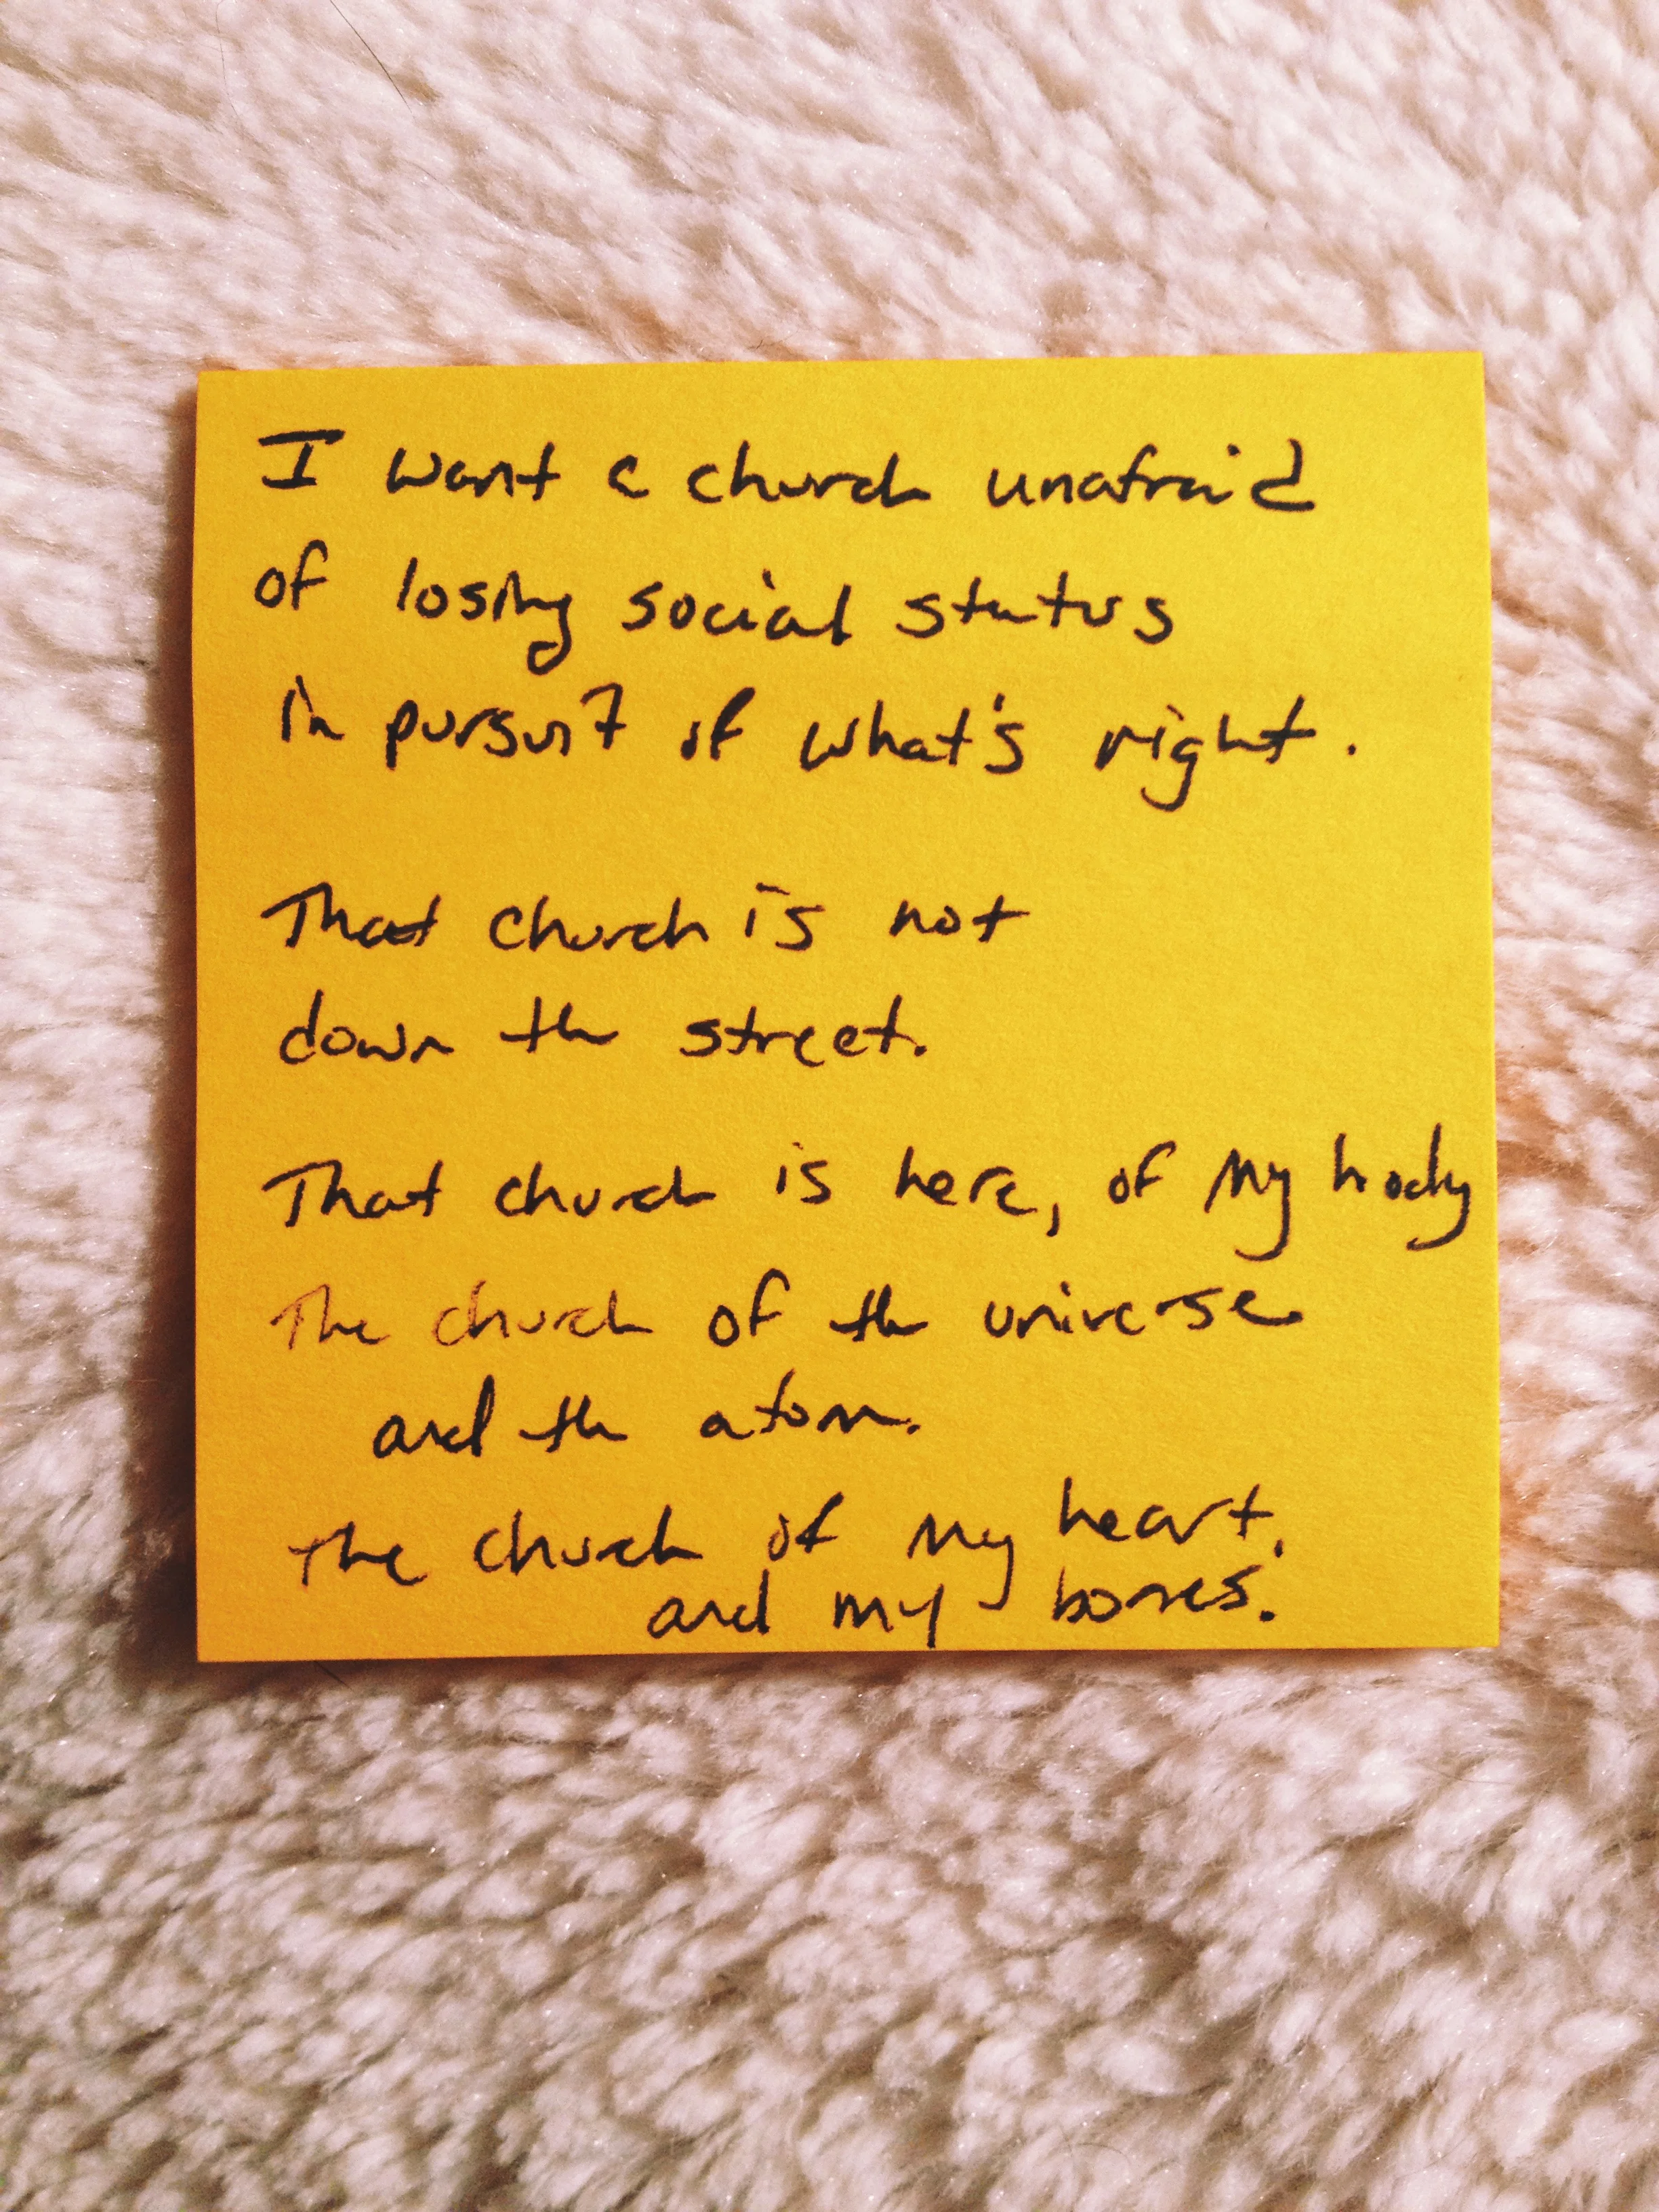 I want a church unafraid
of losing social status
in pursuit of what's right.
That church is not
down the street.
That church is here, of my body
The church of the universe
and the atom.
The church of my heart.
and my bones.